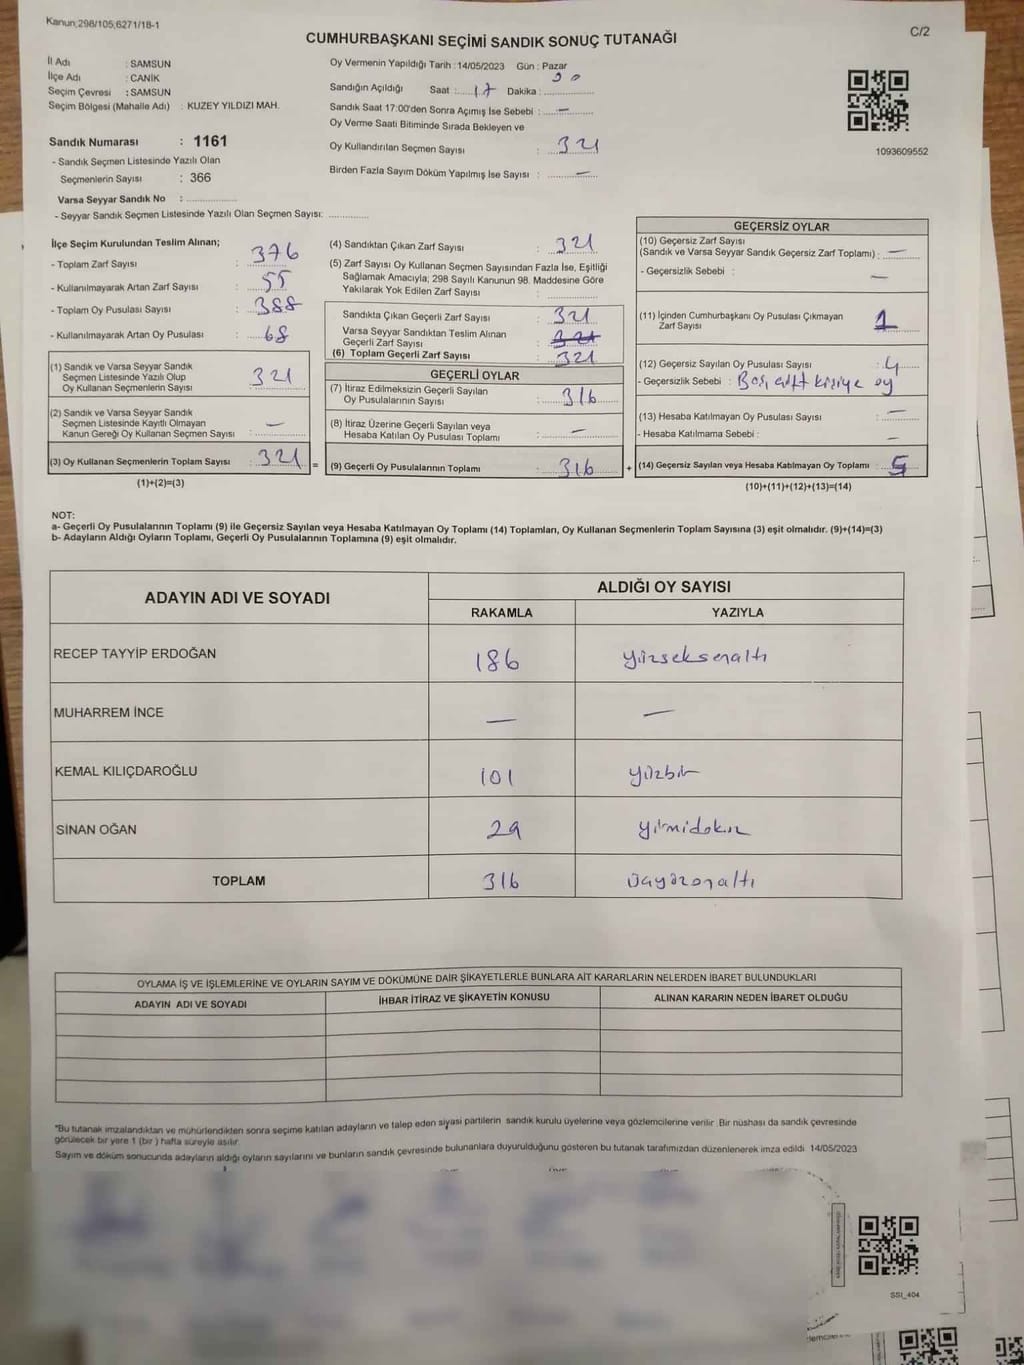 Kanun;298/105;6271/18-1
C/2
CUMHURBAŞKANI SEÇİMİ SANDIK SONUÇ TUTANAĞI
İl Adı : SAMSUN
İlçe Adı : CANİK
Seçim Çevresi : SAMSUN
Seçim Bölgesi (Mahalle Adı) : KUZEY YILDIZI MAH.
Sandık Numarası : 1161
- Sandık Seçmen Listesinde Yazılı Olan
Seçmenlerin Sayısı : 366
Varsa Seyyar Sandık No : ..................
- Seyyar Sandık Seçmen Listesinde Yazılı Olan Seçmen Sayısı: ..............
Oy Vermenin Yapıldığı Tarih :14/05/2023 Gün : Pazar
Sandığın Açıldığı Saat : 17 Dakika :
Sandık Saat 17:00'den Sonra Açımış İse Sebebi : —
Oy Verme Saati Bitiminde Sırada Bekleyen ve
Oy Kullandırılan Seçmen Sayısı : 321
Birden Fazla Sayım Döküm Yapılmış İse Sayısı : —
1093609552
İlçe Seçim Kurulundan Teslim Alınan;
- Toplam Zarf Sayısı : 376
- Kullanılmayarak Artan Zarf Sayısı : 55
- Toplam Oy Pusulası Sayısı : 388
- Kullanılmayarak Artan Oy Pusulası : 68
(1) Sandık ve Varsa Seyyar Sandık
Seçmen Listesinde Yazılı Olup
Oy Kullanan Seçmenlerin Sayısı : 321
(2) Sandık ve Varsa Seyyar Sandık
Seçmen Listesinde Kayıtlı Olmayan
Kanun Gereği Oy Kullanan Seçmen Sayısı : —
(3) Oy Kullanan Seçmenlerin Toplam Sayısı : 321 =
(1)+(2)=(3)
(4) Sandıktan Çıkan Zarf Sayısı : 321
(5) Zarf Sayısı Oy Kullanan Seçmen Sayısından Fazla İse, Eşitliği
Sağlamak Amacıyla; 298 Sayılı Kanunun 98. Maddesine Göre
Yakılarak Yok Edilen Zarf Sayısı :
Sandıkta Çıkan Geçerli Zarf Sayısı : 321
Varsa Seyyar Sandıktan Teslim Alınan
Geçerli Zarf Sayısı : 321
(6) Toplam Geçerli Zarf Sayısı : 321
GEÇERLİ OYLAR
(7) İtiraz Edilmeksizin Geçerli Sayılan
Oy Pusulalarının Sayısı : 316
(8) İtiraz Üzerine Geçerli Sayılan veya
Hesaba Katılan Oy Pusulası Toplamı : —
(9) Geçerli Oy Pusulalarının Toplamı : 316 +
GEÇERSİZ OYLAR
(10) Geçersiz Zarf Sayısı
(Sandık ve Varsa Seyyar Sandık Geçersiz Zarf Toplamı) : —
- Geçersizlik Sebebi : —
(11) İçinden Cumhurbaşkanı Oy Pusulası Çıkmayan
Zarf Sayısı : 1
(12) Geçersiz Sayılan Oy Pusulası Sayısı : 4
- Geçersizlik Sebebi : Boş, çift kişiye oy
(13) Hesaba Katılmayan Oy Pusulası Sayısı : —
- Hesaba Katılmama Sebebi : —
(14) Geçersiz Sayılan veya Hesaba Katılmayan Oy Toplamı : 5
(10)+(11)+(12)+(13)=(14)
NOT:
a- Geçerli Oy Pusulalarının Toplamı (9) ile Geçersiz Sayılan veya Hesaba Katılmayan Oy Toplamı (14) Toplamları, Oy Kullanan Seçmenlerin Toplam Sayısına (3) eşit olmalıdır. (9)+(14)=(3)
b- Adayların Aldığı Oyların Toplamı, Geçerli Oy Pusulalarının Toplamına (9) eşit olmalıdır.
ADAYIN ADI VE SOYADI ALDIĞI OY SAYISI
RAKAMLA YAZIYLA
RECEP TAYYİP ERDOĞAN 186 yüzseksenaltı
MUHARREM İNCE — —
KEMAL KILIÇDAROĞLU 101 yüzbir
SİNAN OĞAN 29 yirmidokuz
TOPLAM 316 üçyüzonaltı
OYLAMA İŞ VE İŞLEMLERİNE VE OYLARIN SAYIM VE DÖKÜMÜNE DAİR ŞİKAYETLERLE BUNLARA AİT KARARLARIN NELERDEN İBARET BULUNDUKLARI
ADAYIN ADI VE SOYADI İHBAR İTİRAZ VE ŞİKAYETİN KONUSU ALINAN KARARIN NEDEN İBARET OLDUĞU
*Bu tutanak imzalandıktan ve mühürlendikten sonra seçime katılan adayların ve talep eden siyasi partilerin sandık kurulu üyelerine veya gözlemcilerine verilir. Bir nüshası da sandık çevresinde
görülecek bir yere 1 (bir ) hafta süreyle asılır.
Sayım ve döküm sonucunda adayların aldığı oyların sayılarını ve bunların sandık çevresinde bulunanlara duyurulduğunu gösteren bu tutanak tarafımızdan düzenlenerek imza edildi. 14/05/2023
SSI_404